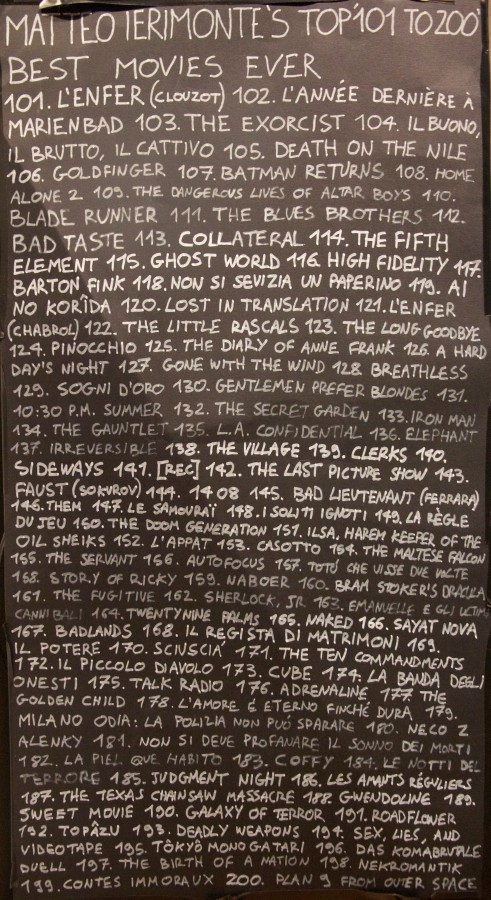 MATTEO TERIMONTE'S TOP 101 TO 200
BEST MOVIES EVER
101. L'ENFER (CLOUZOT) 102. L'ANNÉE DERNIÈRE À
MARIENBAD 103. THE EXORCIST 104. IL BUONO,
IL BRUTTO, IL CATTIVO 105. DEATH ON THE NILE
106. GOLDFINGER 107. BATMAN RETURNS 108. HOME
ALONE 2 109. THE DANGEROUS LIVES OF ALTAR BOYS 110.
BLADE RUNNER 111. THE BLUES BROTHERS 112.
BAD TASTE 113. COLLATERAL 114. THE FIFTH
ELEMENT 115. GHOST WORLD 116. HIGH FIDELITY 117.
BARTON FINK 118. NON SI SEVIZIA UN PAPERINO 119. AI
NO KORÎDA 120. LOST IN TRANSLATION 121. L'ENFER
(CHABROL) 122. THE LITTLE RASCALS 123. THE LONG GOODBYE
124. PINOCCHIO 125. THE DIARY OF ANNE FRANK 126. A HARD
DAY'S NIGHT 127. GONE WITH THE WIND 128. BREATHLESS
129. SOGNI D'ORO 130. GENTLEMEN PREFER BLONDES 131.
10:30 P.M. SUMMER 132. THE SECRET GARDEN 133. IRON MAN
134. THE GAUNTLET 135. L.A. CONFIDENTIAL 136. ELEPHANT
137. IRREVERSIBLE 138. THE VILLAGE 139. CLERKS 140.
SIDEWAYS 141. [REC] 142. THE LAST PICTURE SHOW 143.
FAUST (SOKUROV) 144. 1408 145. BAD LIEUTENANT (FERRARA)
146. THEM 147. LE SAMOURAÏ 148. I SOLITI IGNOTI 149. LA RÈGLE
DU JEU 150. THE DOOM GENERATION 151. ILSA, HAREM KEEPER OF THE
OIL SHEIKS 152. L'APPAT 153. CASOTTO 154. THE MALTESE FALCON
155. THE SERVANT 156. AUTOFOCUS 157. TOTÓ CHE VISSE DUE VOLTE
158. STORY OF RICKY 159. NABOER 160. BRAM STOKER'S DRACULA
161. THE FUGITIVE 162. SHERLOCK, JR 163. EMANUELLE E GLI ULTIMI
CANNIBALI 164. TWENTYNINE PALMS 165. NAKED 166. SAYAT NOVA
167. BADLANDS 168. IL REGISTA DI MATRIMONI 169.
IL POTERE 170. SCIUSCIA' 171. THE TEN COMMANDMENTS
172. IL PICCOLO DIAVOLO 173. CUBE 174. LA BANDA DEGLI
ONESTI 175. TALK RADIO 176. ADRENALINE 177 THE
GOLDEN CHILD 178. L'AMORE É ETERNO FINCHÉ DURA 179.
MILANO ODIA: LA POLIZIA NON PUÓ SPARARE 180. NECO Z
ALENKY 181. NON SI DEVE PROFANARE IL SONNO DEI MORTI
182. LA PIEL QUE HABITO 183. COFFY 184. LE NOTTI DEL
TERRORE 185. JUDGMENT NIGHT 186. LES AMANTS RÉGULIERS
187. THE TEXAS CHAINSAW MASSACRE 188. GWENDOLINE 189.
SWEET MOVIE 190. GALAXY OF TERROR 191. ROADFLOWER
192. TOPÂZU 193. DEADLY WEAPONS 194. SEX, LIES, AND
VIDEOTAPE 195. TÔKYÔ MONOGATARI 196. DAS KOMABRUTALE
DUELL 197. THE BIRTH OF A NATION 198. NEKROMANTIK
199. CONTES IMMORAUX 200. PLAN 9 FROM OUTER SPACE